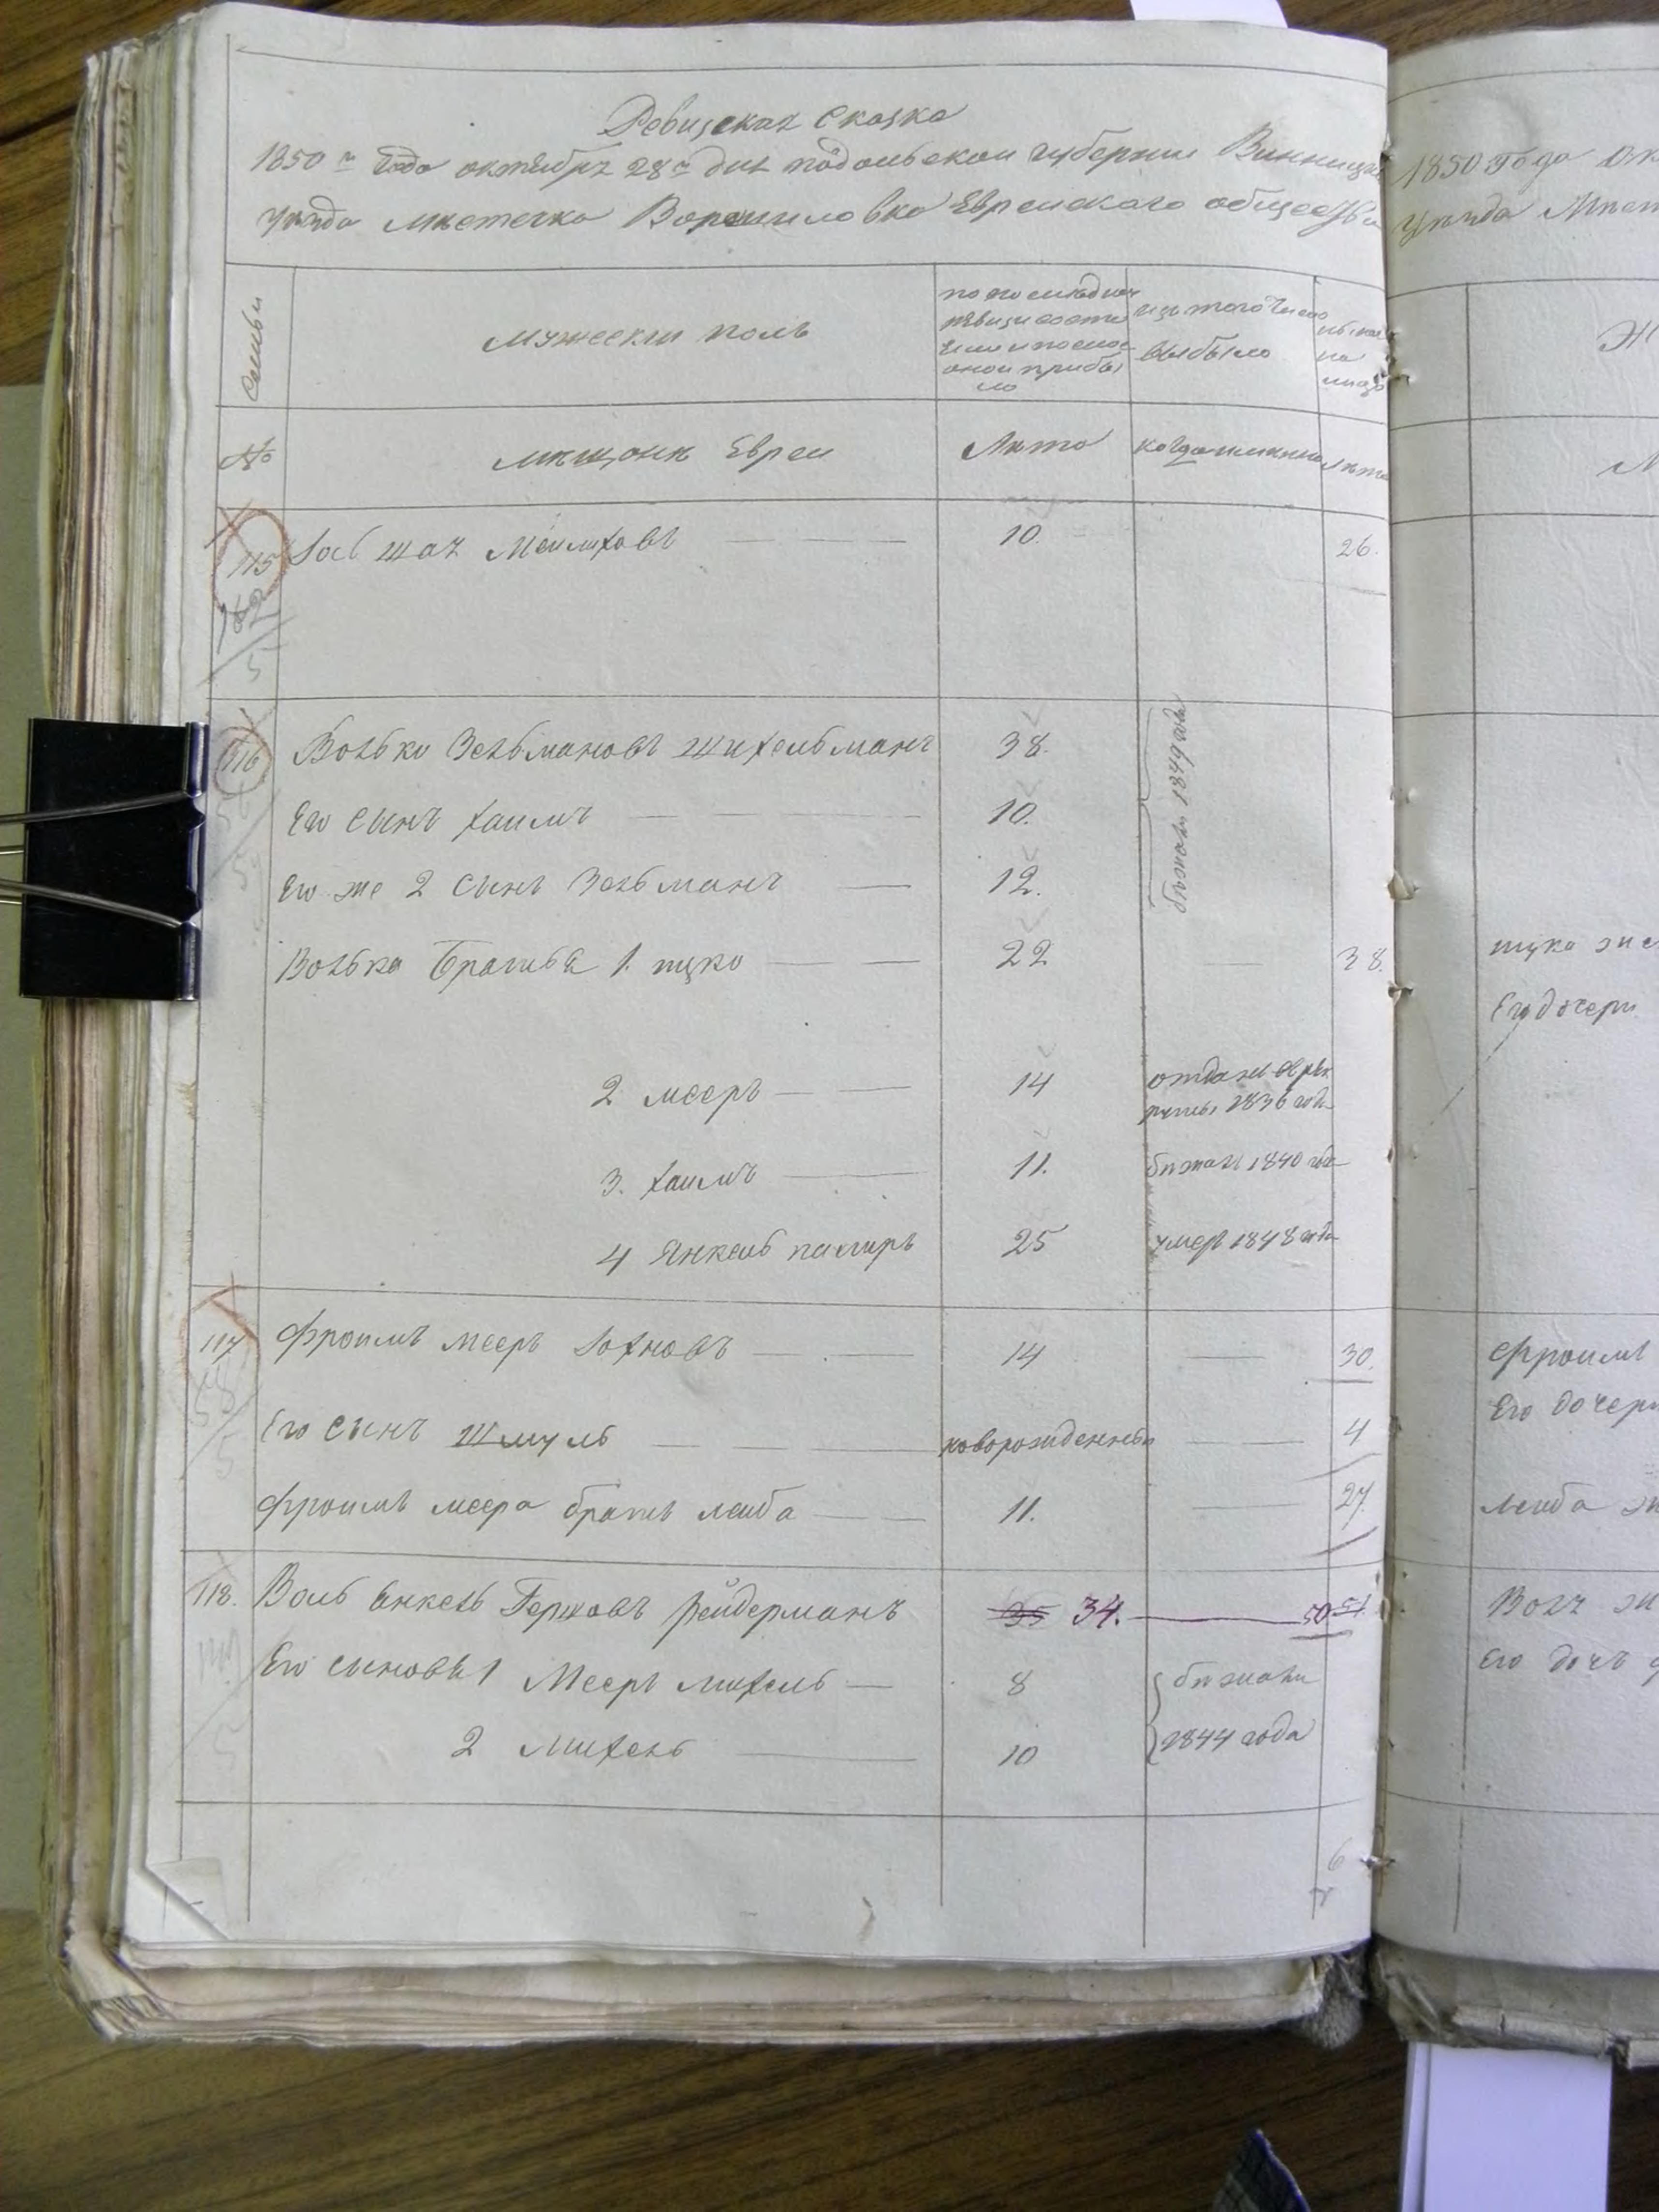 Ревизская Сказка
1850 го года октября 28 го дня подольской губерніи Винницка
уѣзда мѣстечка Ворошиловка Еврейскаго общества
Семьи
мужескій полъ
по последней
ревизіи состо
яло и после
оной прибы
ло
изъ того числа
выбыло
нынѣ
на
лицо
№
мѣщане Евреи
Лѣта
когда именно
Лѣта
115
Меилиховъ
10.
26.
5
116 Волько Зельмановъ Шихельманъ 38.
Его сынъ хаимъ 10.
Его же 2 сынъ Зельманъ 12.
бѣжали 1849 года
Волька братья 1. ицко 22 38.
2 мееръ 14 отданъ в рек
руты 1836 года
3. хаимъ 11. бѣжалъ 1840 года
4 Янкель 25 умеръ 1848 года
117 Фроимъ мееръ Іохновъ 14 30.
Его сынъ Шмуль новорожденный 4
5
Фроимъ меера братъ леиба 11. 27.
118. Воль Янкель Гершовъ Рейдерманъ 35 34. 50 51
Его сыновья 1 Мееръ михель 8 бѣжали
2 Михель 10 1844 года
5
6
1850 года Ок
уѣзда Мѣст
Ж
ицка
Его дочери
Фроимъ
Его дочери
леиба
Его дочь